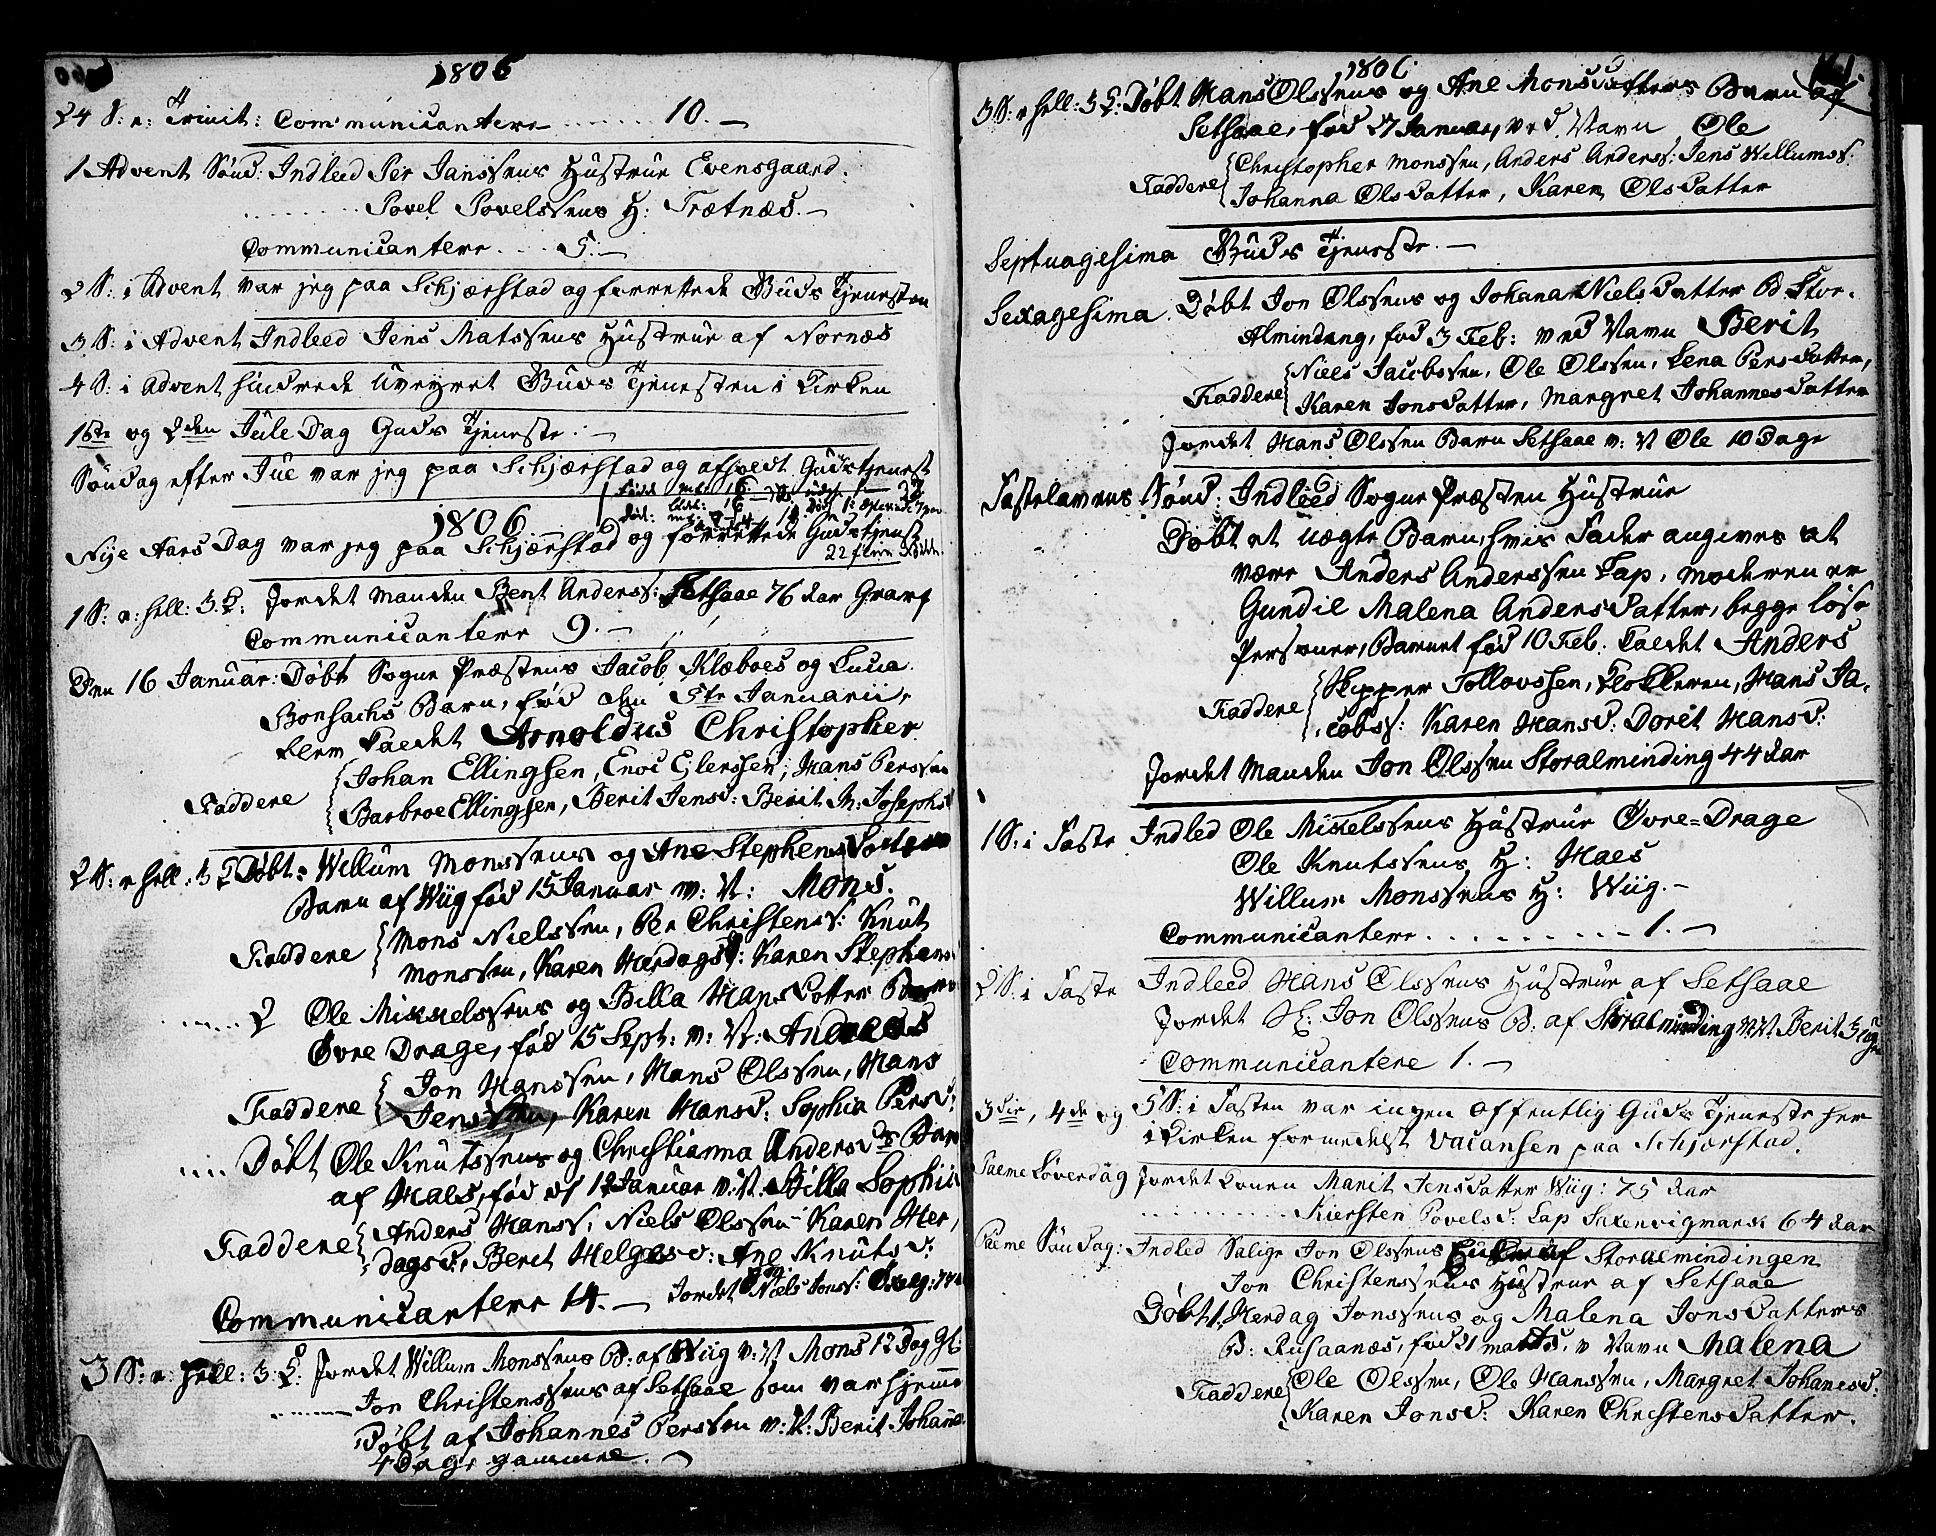 1806
24 S: e: Trinit: Communicantere ...... 10. —
1 Advent Sönd: Indleed Per Janssens Hustrue Evensgaard.
........ Povel Povelssens H: Trætnæs. —
Communicantere .... 5. —
2 S: i Advent var jeg paa Schjærstad og forrettede Guds Tjenesten
3 S: i Advent Indleed Jens Matssens Hustrue af Nornæs
4 S: i Advent hindrede Uveyret Guds Tjenesten i Kirken
1ste og 2den Jule Dag Guds Tjeneste. —
Söndag efter Jue var jeg paa Schjærstad og afholdt Gudstjenest
1806
Nije Aars Dag var jeg paa Schjærstad og forrettede Gudstjenest
22 flere
1 S: e: hell: 3 K: Jordet Manden Bent Anderss: Setsaae 76 Aar Grarf
Communicantere 9. —
Den 16 Januar: Döbt Sogne Præstens Jacob Klæboes og Lucia
Bonsachs Barn, föd den 5te Januarii,
blev kaldet Arnoldus Christopher
Faddere Johan Ellingsen, Enoc Ejlerssen, Hans Perssen
Barbroe Ellingsen, Berit Jensd: Berit M: Josephs
2 S: e hell: 3 K Döbt: Willum Monssens og Ane Stephens Datters
Barn af Wiig föd 15 Januar v: N: Mons.
Faddere Mons Nielssen, Per Christens: Knut
Monssen, Karen Herdagsd: Karen Stephens
....... 2 Ole Mikkelssens og Billa Hans Datter Barn
Övre Drage, föd 15 Sept: v: N: Andreas
Faddere Jon Hanssen, Hans Olssen, Hans
Jenssen, Karen Hansd: Sophia Persd:
.... Döbt Ole Knutssens og Christianna Andersdrs Barn
af Maes, föd d 12 Januar v: N. Billa Sophia
Faddere Anders Hanss: Niels Olssen Karen Her,
dagsd:, Berit Helgesd: Ane Knutsd:
Communicantere 14. — Jordet Niels Jonss:
3 S: e: hell: 3: K: Jordet Willum Monssens B: af Wiig v: N Mons 12 Dag Gl
........ Jon Christenssens af Setsaae som var hjemme
Döbt af Johannes Perssen v: N: Berit Johanna
4 Dage gammel. —
1806
3 S: e hell: 3 K: Döbt Hans Olssens og Ane Monsdatters Barn af
Setsaae, föd 27 Januar, ved Navn Ole
Faddere Christopher Monssen, Anders Anderss: Jens Willumss:
Johanna Olsdatter, Karen Olsdatter
Septuagesima Guds Tjeneste. —
Sexagesima. Döbt Jon Olssens og Johana Nielsdatter B Stor-
Alminding, föd 3 Feb: ved Navn Berit
Faddere Niels Jacobssen, Ole Olssen, Lena Persdatter,
Karen Jonsdatter, Margret Johannesdatter
Jordet Hans Olssen Barn Setsaae v: N Ole 10 Dage
Fastelavens Sönd: Indleed Sogne Præsten Hustrue
Döbt et uægte Barn, hvis Fader angives at
være Anders Anderssen Lap, moderen er
Gundil Malena Andersdatter, begge löse
Personer, Barnet föd 10 Feb. kaldet Anders
Faddere Skipper Tollovssen, Klokkeren, Hans Ja-
cobss: Karen Hansd: Doret Hansd:
Jordet Manden Jon Olssen Storalminding 44 Aar
1 S: i Faste Indled Ole Mikelssens Hustrue Övre-Drage
Ole Knutssens H: Maes
Willum Monssens H: Wiig. —
Communicantere ......... 1. —
2 S: i Faste Indleed Hans Olssens Hustrue af Setsaae
Jordet Sl: Jon Olssens B: af Storalminding v: N: Berit 3 uger
Communicantere 1. —
3die, 4de og 5 S: i Fasten var ingen offentlig Guds Tjeneste her
i Kirken formedelst vacansen paa Schjærstad.
Palme Löverdag Jordet Konen Marit Jensdatter Wiig: 75 Aar
............ Kiersten Povelsd: Lap Saxenvigmark 64 Aar
Palme Söndag: Indled Salige Jon Olssens Enke af Storalmindingen
Jon Christenssens Hustrue af Setsaae
Döbt 1, Herdag Jonssens og Malena Jonsdatters
B: Rusaanæs, föd 21 Marts, v Navn Malena
Faddere Ole Olssen, Ole Hanssen, Margret Johanesd:
Karen Jonsd: Karen Christensdatter.